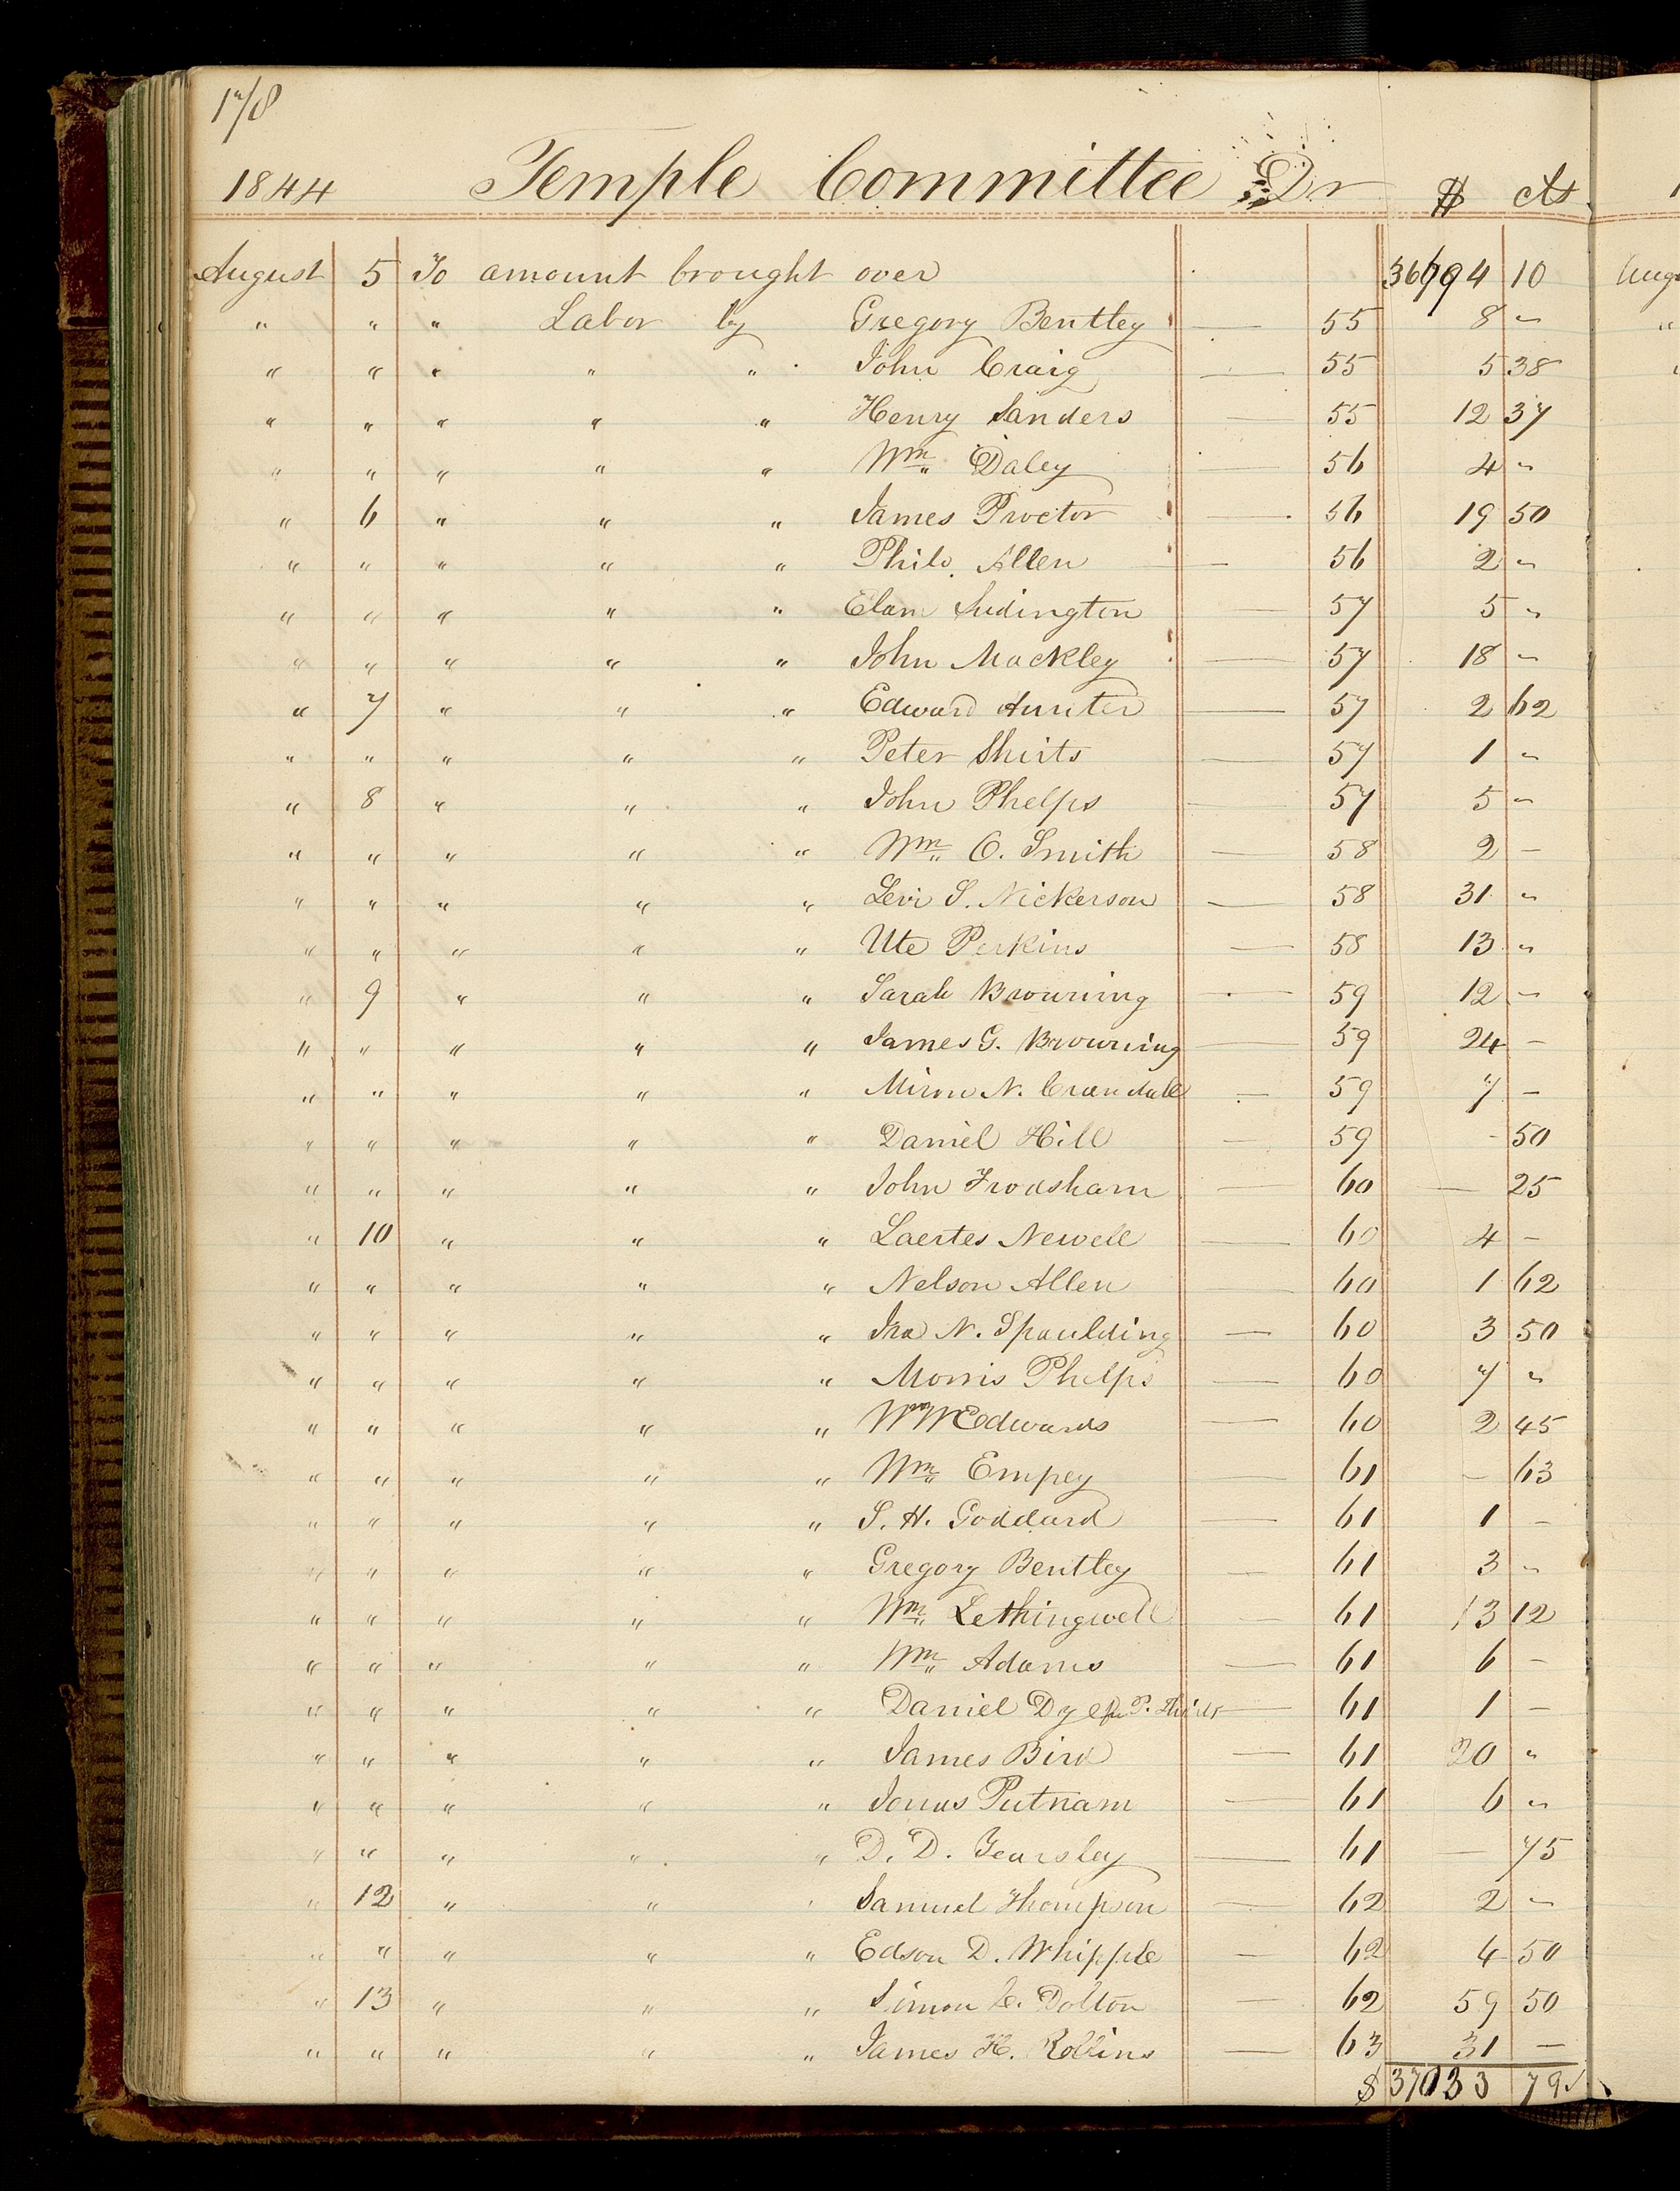 178
1844 Temple Committee Dr $ cts
August 5 To amount brought over 36694 10
" " " Labor by Gregory Bentley — 55 8 "
" " " " " John Craig — 55 5 38
" " " " " Henry Sanders — 55 12 37
" " " " " Wm Daley — 56 4 "
" 6 " " " James Proctor — 56 19 50
" " " " " Philo Allen — 56 2 "
" " " " " Elam Ludington — 57 5 "
" " " " " John Mackley — 57 18 "
" 7 " " " Edward Hunter — 57 2 62
" " " " " Peter Shirts — 57 1 "
" 8 " " " John Phelps — 57 5 "
" " " " " Wm O. Smith — 58 2 —
" " " " " Levi S. Nickerson — 58 31 "
" " " " " Ute Perkins — 58 13 "
" 9 " " " Sarah Browning — 59 12 —
" " " " " James G. Browning — 59 24 —
" " " " " Miron N. Crandall — 59 7 —
" " " " " Daniel Hill — 59 - 50
" " " " " John Frodsham — 60 — 25
" 10 " " " Laertes Newell — 60 4 —
" " " " " Nelson Allen — 60 1 62
" " " " " Ira N. Spaulding — 60 3 50
" " " " " Morris Phelps — 60 7 "
" " " " " Wm W Edwards — 60 2 45
" " " " " Wm Empey — 61 — 63
" " " " " S. H. Goddard — 61 1 —
" " " " " Gregory Bentley — 61 3 "
" " " " " Wm Lethingwell — 61 13 12
" " " " " Wm Adams — 61 6 —
" " " " " Daniel Dye P. Shirts — 61 1 —
" " " " " James Bird — 61 20 "
" " " " " Jonas Putnam — 61 6 "
" " " " " D. D. Yearsley — 61 — 75
" 12 " " " Samuel Thompson — 62 2 —
" " " " " Edson D. Whipple — 62 4 50
" 13 " " " Simon C. Dolton — 62 59 50
" " " " " James H. Rollins — 63 31 —
$ 37033 79